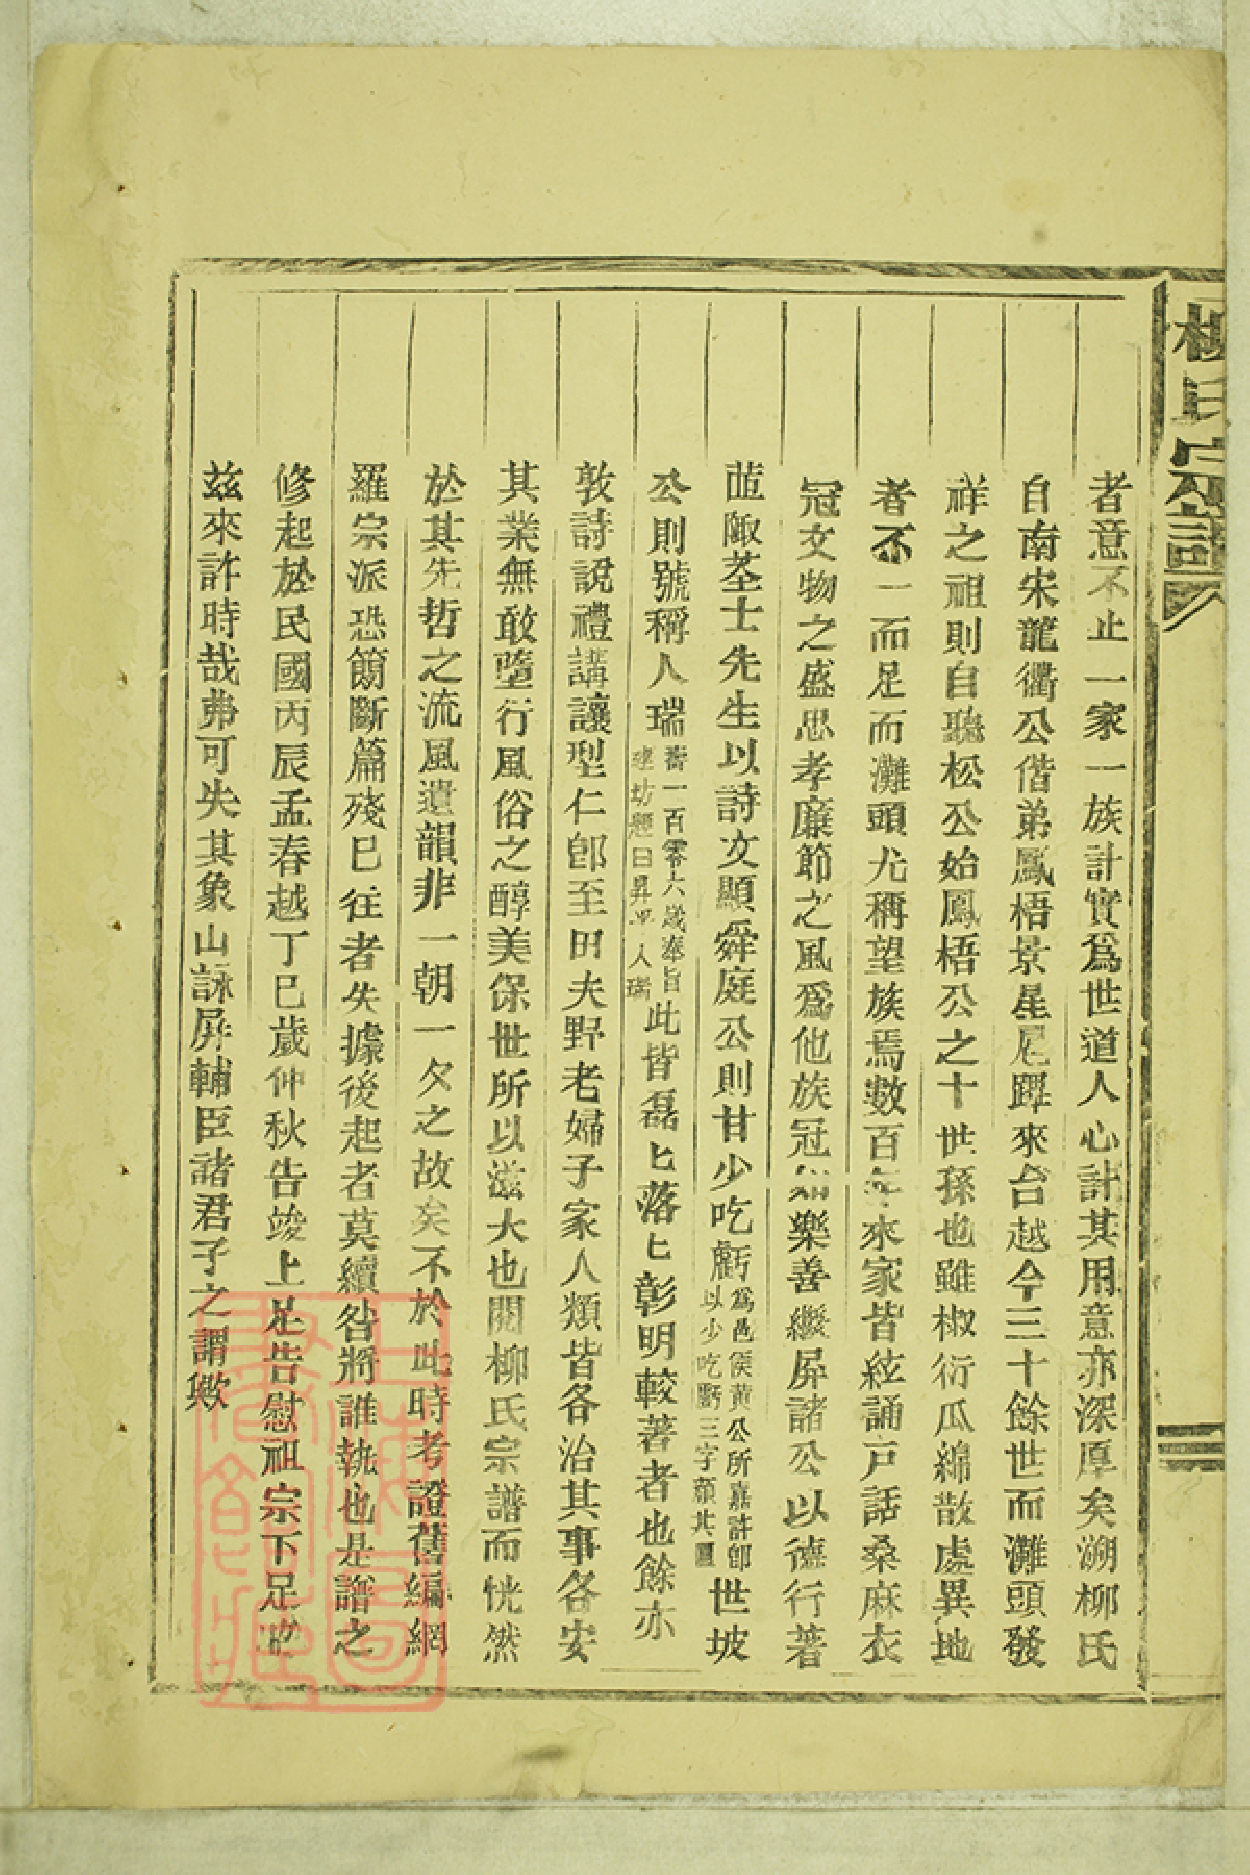 柳氏宗譜
者意不止一家一族計實爲世道人心計其用意亦深厚矣溯柳氏
自南宋籠衢公偕弟鳳梧景星扈蹕來台越今三十餘世而灘頭發
祥之祖則自聽松公始鳳梧公之十世孫也雖椒衍瓜綿散處異地
者不一而足而灘頭尤稱望族焉數百年來家皆絃誦戸話桑麻衣
冠文物之盛忠孝廉節之風爲他族冠紹樂善繼屏諸公以德行著
茝陬荃士先生以詩文顯舜庭公則甘少吃虧
爲邑侯黄公所嘉許卽
以少吃虧三字額其
世坡
公則號稱人瑞
壽一百零六歲奉旨
建坊題曰昇平人瑞
此皆磊匕落匕彰明較著者也餘亦
敦詩說禮講讓型仁卽至田夫野老婦子家人類皆各治其事各安
其業無敢墮行風俗之醇美保世所以滋大也閱柳氏宗譜而恍然
於其先哲之流風遺韻非一朝一夕之故矣不於此時考證舊編網
羅宗派恐簡斷篇殘已往者失據後起者莫續咎將誰執也是譜之
修起於民國丙辰孟春越丁巳歲仲秋告竣上足告慰祖宗下足
茲來許時哉弗可失其象山詠屏輔臣諸君子之謂歟
上海圖書館藏